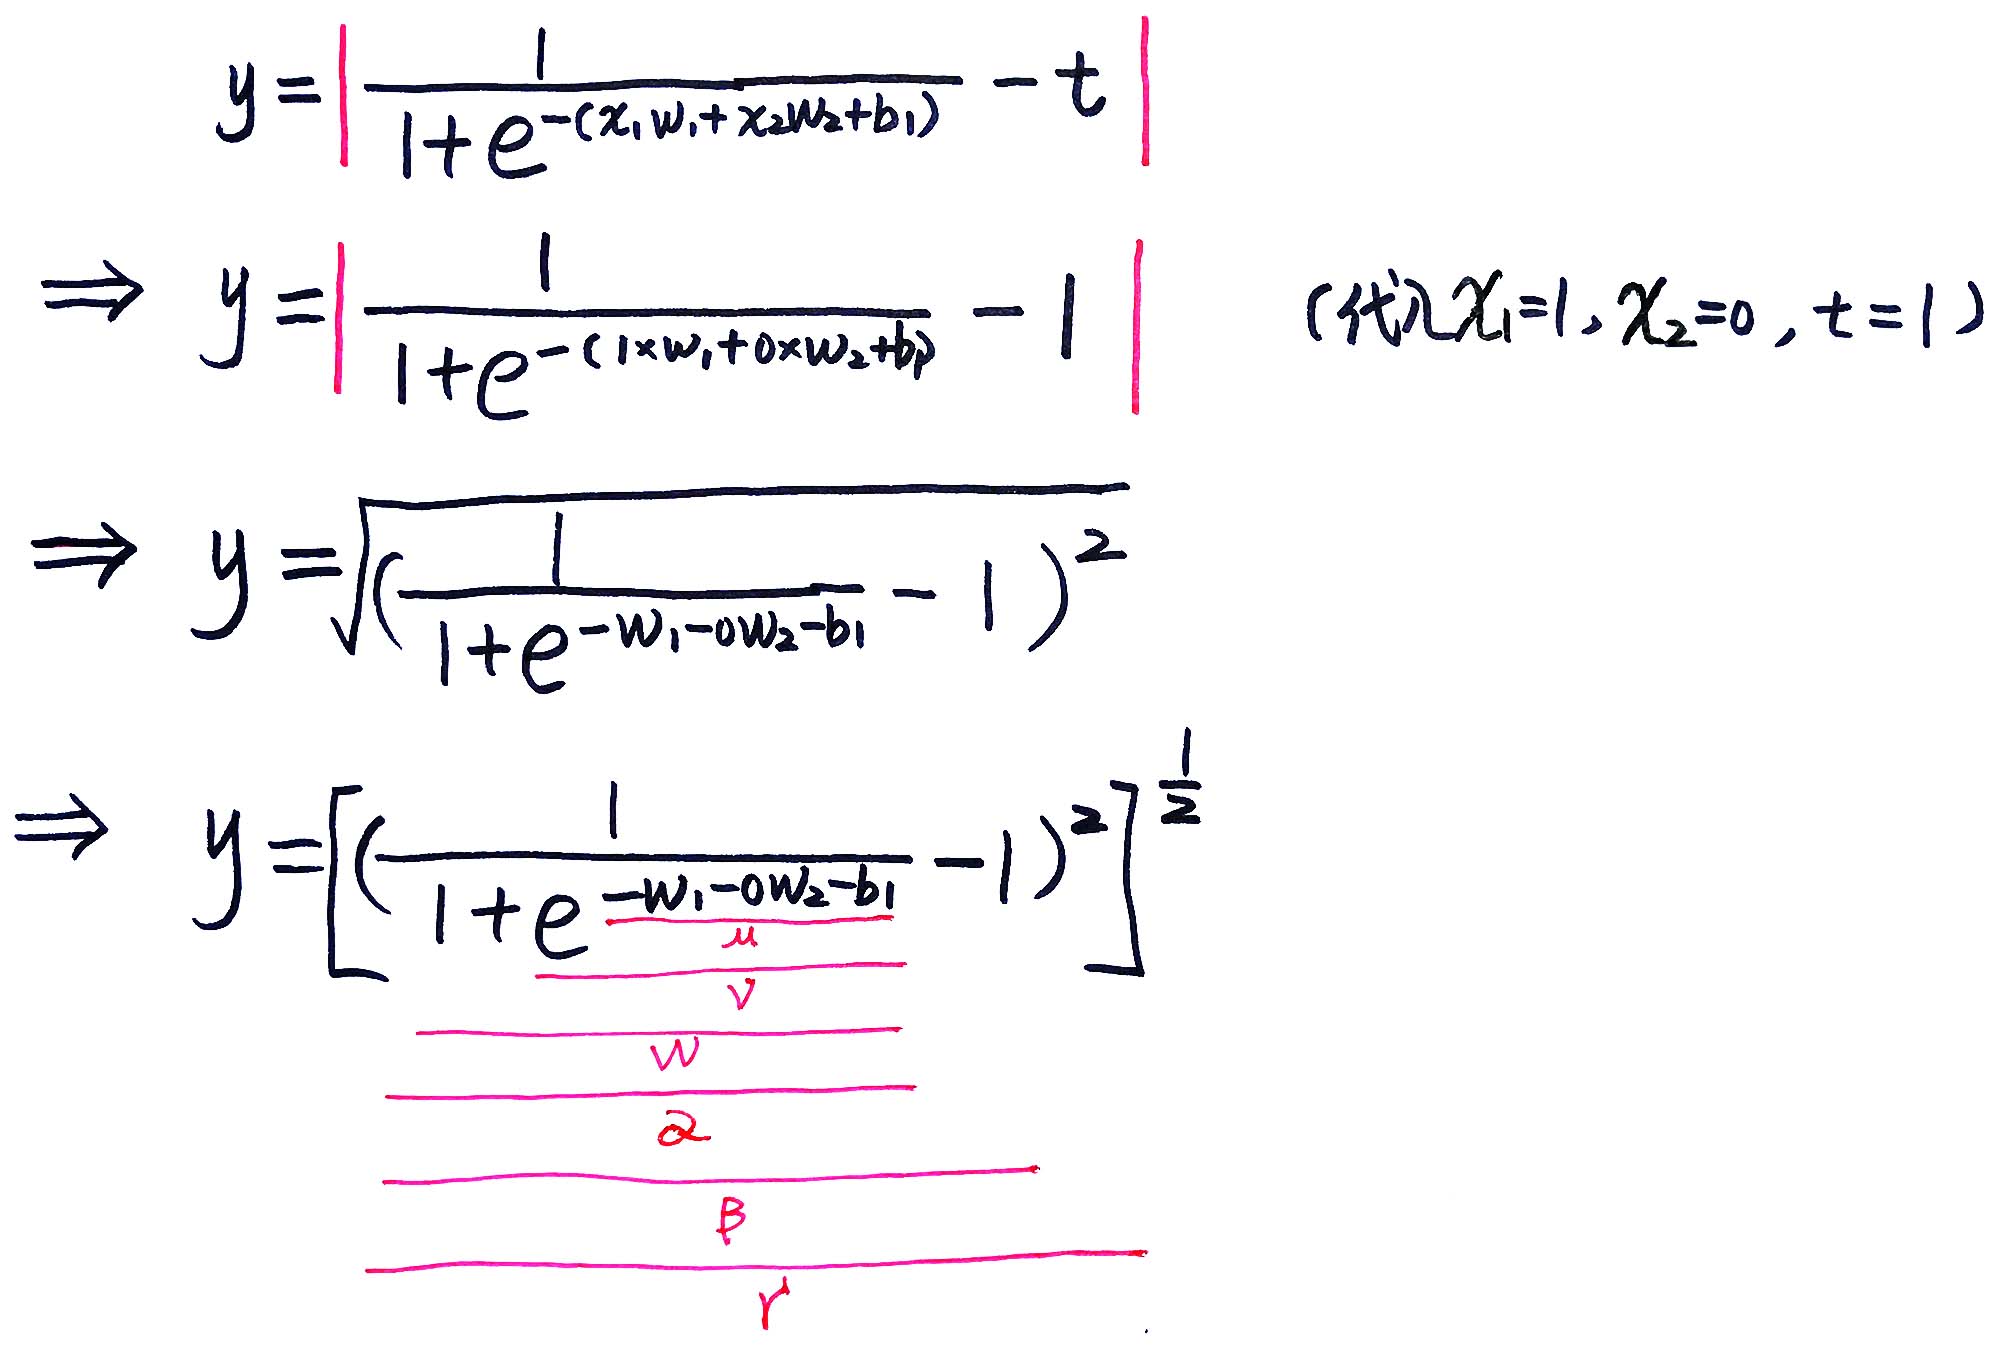 y = | 1 / (1 + e^{-(x₁w₁ + x₂w₂ + b₁)}) - t |
⇒ y = | 1 / (1 + e^{-(1×w₁ + 0×w₂ + b₁)}) - 1 | (代入 x₁=1, x₂=0, t=1)
⇒ y = √( ( 1 / (1 + e^{-w₁-0w₂-b₁}) - 1 )² )
⇒ y = [ ( 1 / (1 + e^{-w₁-0w₂-b₁}) - 1 )² ]^{1/2}
u
v
w
α
β
r